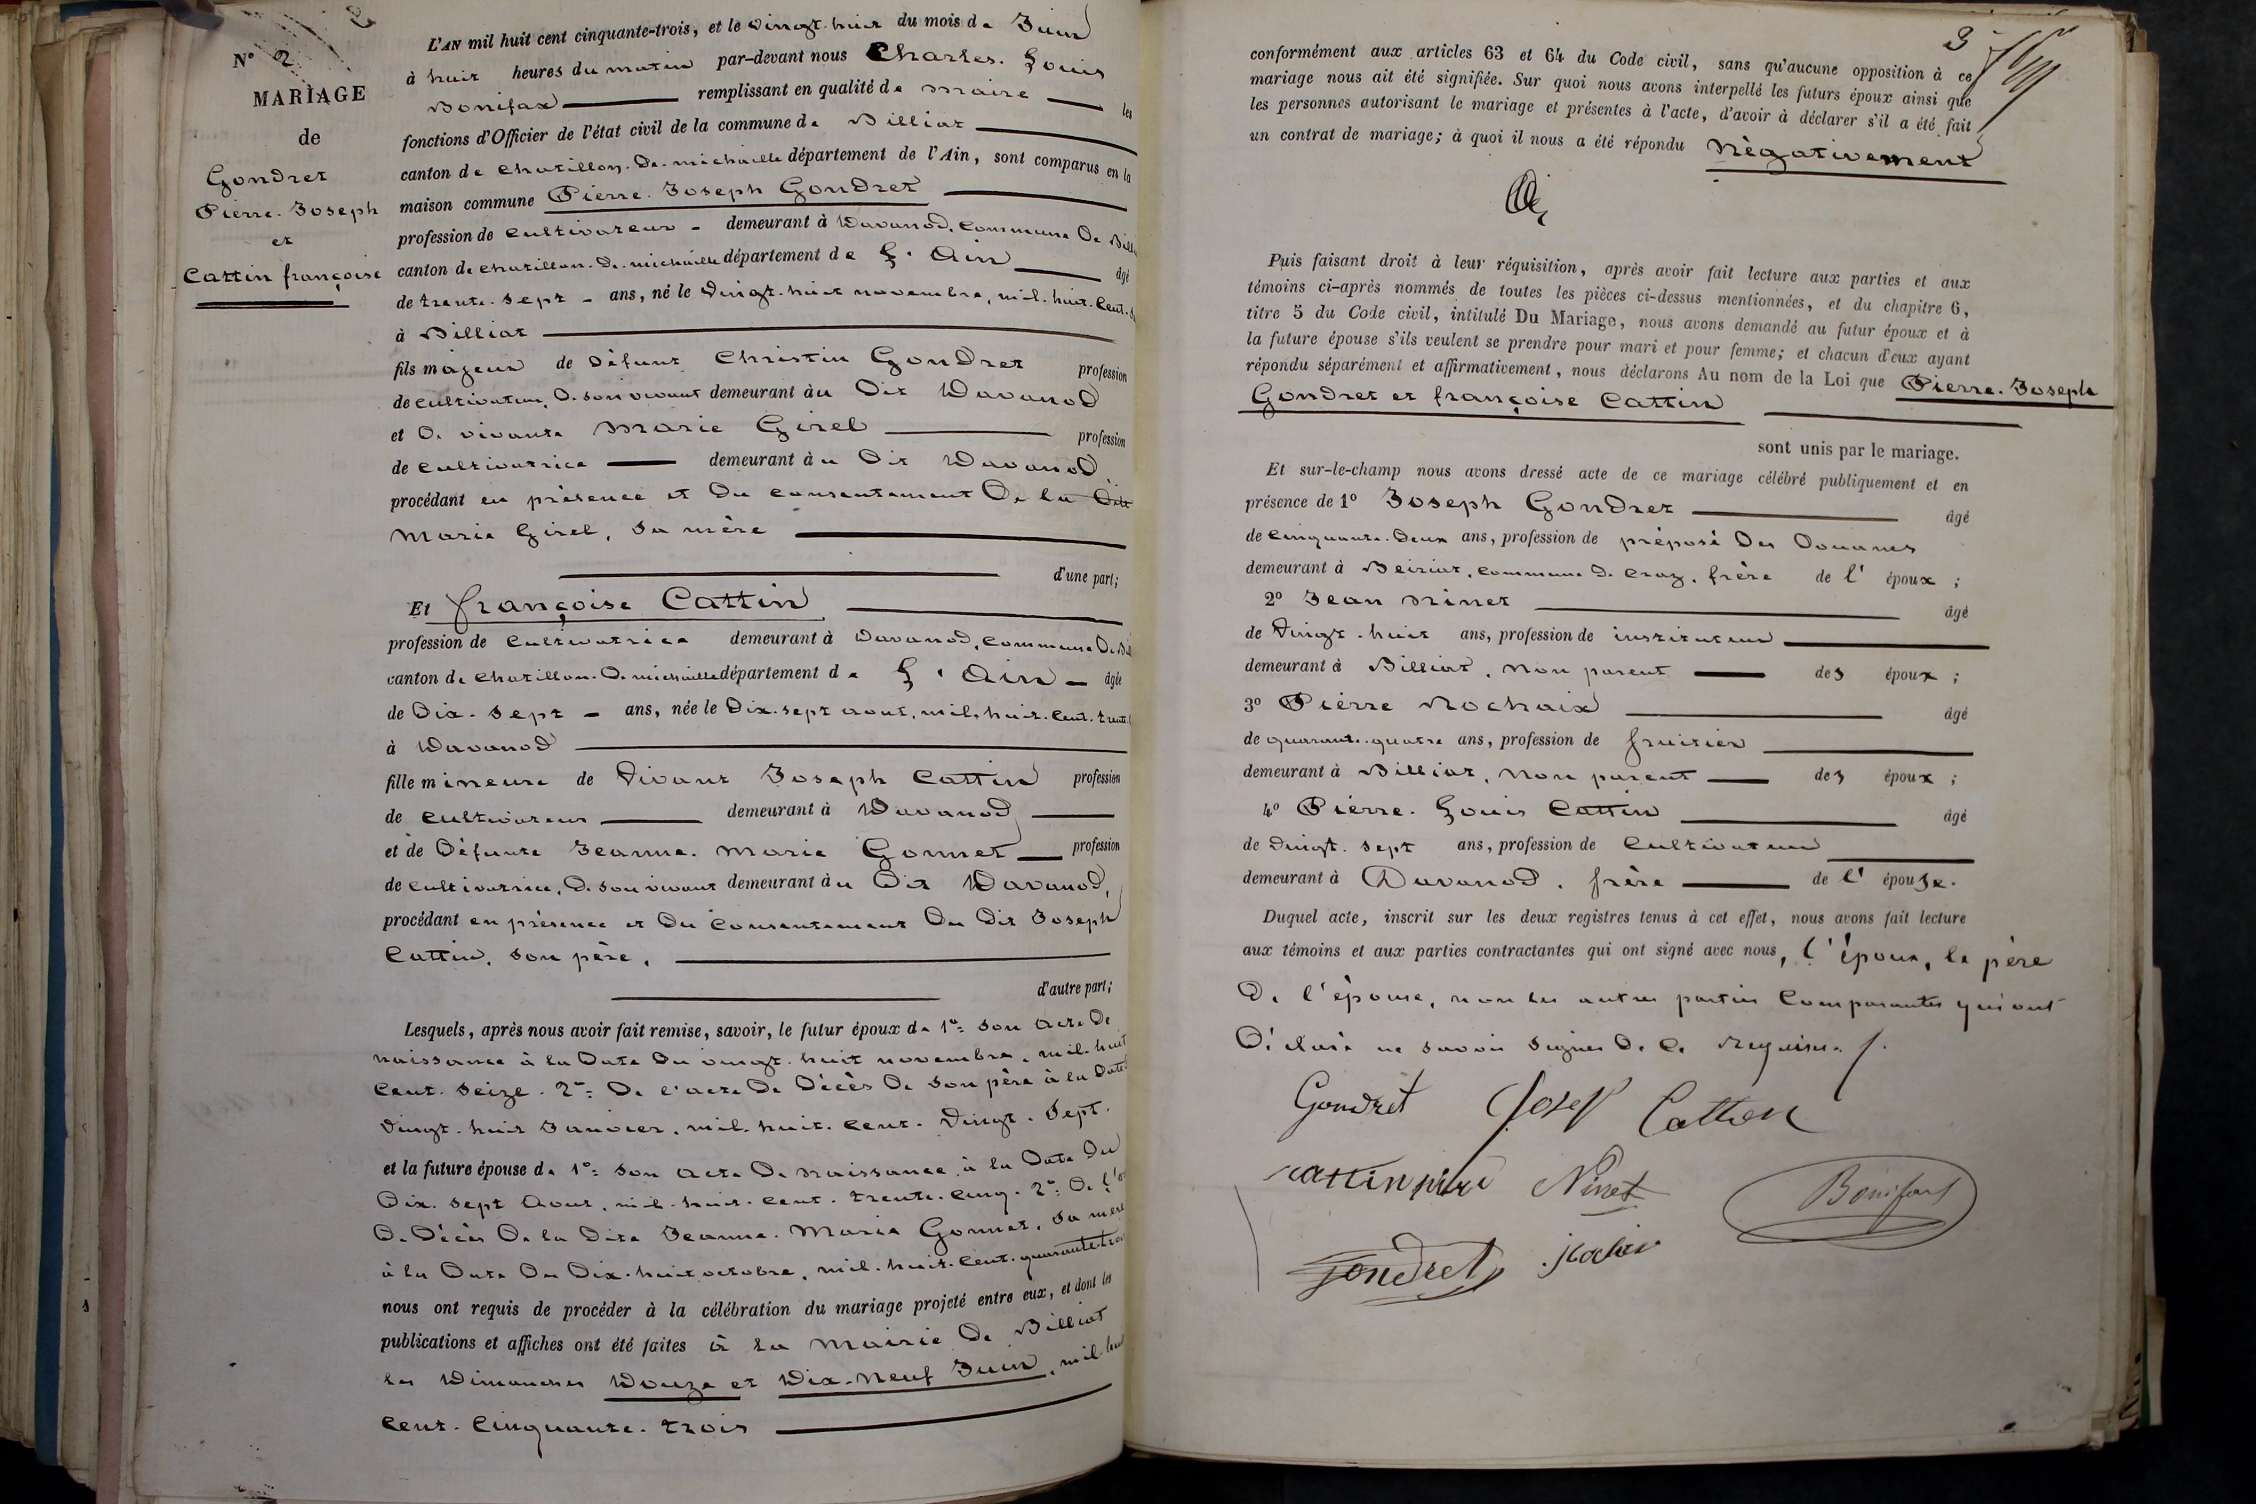 N° 2
MARIAGE
de
Gondret
Pierre-Joseph
et
Cattin françoise
L'AN mil huit cent cinquante-trois, et le vingt-huit du mois de Juin
à huit heures du matin par-devant nous Charles-Louis
Bonifax remplissant en qualité de maire les
fonctions d'Officier de l'état civil de la commune de Billiat
canton de Chatillon-De-michaille département de l'Ain, sont comparus en la
maison commune Pierre-Joseph Gondret
profession de cultivateur demeurant à Davanod, commune De Bill
canton de chatillon-De-michaille département de L'Ain âgé
de trente-sept ans, né le vingt-huit novembre, mil-huit-cent-
à Billiat
fils majeur de Défunt Christin Gondret profession
de cultivateur, De son vivant demeurant àu Dit Davanod
et De vivante Marie Girel profession
de cultivatrice demeurant àu Dit Davanod
procédant en présence et Du consentement De la Dite
Marie Girel, sa mère
d'une part;
Et françoise Cattin
profession de cultivatrice demeurant à Davanod, commune De
canton de chatillon-De-michaille département de L'Ain âgée
de Dix-sept ans, née le Dix-sept aout, mil-huit-cent-trente
à Davanod
fille mineure de vivant Joseph Cattin profession
de cultivateur demeurant à Davanod
et de Défunte Jeanne-Marie Gonnet profession
de cultivatrice, De son vivant demeurant àu Dit Davanod,
procédant en présence et Du Consentement Du Dit Joseph
Cattin, son père,
d'autre part;
Lesquels, après nous avoir fait remise, savoir, le futur époux de 1°= son acte De
naissance à la Date Du vingt-huit novembre, mil-huit
Cent-Seize. 2°= De l'acte De Décès De son père à la Date
vingt-huit Janvier, mil-huit-cent-vingt-sept.
et la future épouse de 1°= son acte De naissance à la Date Du
Dix-sept Aout, mil-huit-cent-trente-cinq. 2°= De l'
De Décès De la Dite Jeanne-Marie Gonnet, sa mère
à la Date Du Dix-huit octobre, mil-huit-cent-quarante-trois
nous ont requis de procéder à la célébration du mariage projeté entre eux, et dont les
publications et affiches ont été faites à la Mairie De Billiat
les Dimanches Douze et Dix-Neuf Juin, mil-huit
Cent-Cinquante-trois
3
conformément aux articles 63 et 64 du Code civil, sans qu'aucune opposition à ce
mariage nous ait été signifiée. Sur quoi nous avons interpellé les futurs époux ainsi que
les personnes autorisant le mariage et présentes à l'acte, d'avoir à déclarer s'il a été fait
un contrat de mariage; à quoi il nous a été répondu Négativement
Puis faisant droit à leur réquisition, après avoir fait lecture aux parties et aux
témoins ci-après nommés de toutes les pièces ci-dessus mentionnées, et du chapitre 6,
titre 5 du Code civil, intitulé Du Mariage, nous avons demandé au futur époux et à
la future épouse s'ils veulent se prendre pour mari et pour femme; et chacun d'eux ayant
répondu séparément et affirmativement, nous déclarons Au nom de la Loi que Pierre-Joseph
Gondret et françoise Cattin
sont unis par le mariage.
Et sur-le-champ nous avons dressé acte de ce mariage célébré publiquement et en
présence de 1° Joseph Gondret âgé
de cinquante-deux ans, profession de préposé Des Douanes
demeurant à Beiriat, commune De Craz, frère de l' époux;
2° Jean Ninet âgé
de vingt-huit ans, profession de instituteur
demeurant à Billiat, non parent des époux;
3° Pierre Rochaix âgé
de quarante-quatre ans, profession de fruitier
demeurant à Billiat, non parent des époux;
4° Pierre-Louis Cattin âgé
de vingt-sept ans, profession de Cultivateur
demeurant à Davanod, frère de l' épouse.
Duquel acte, inscrit sur les deux registres tenus à cet effet, nous avons fait lecture
aux témoins et aux parties contractantes qui ont signé avec nous, l'époux, le père
De l'épouse, non les autres parties Comparantes qui ont
Déclaré ne savoir signer De Ce Requises.
Gondret Josep Cattin
cattin pierre Ninet Bonifax
Gondret Rochaix